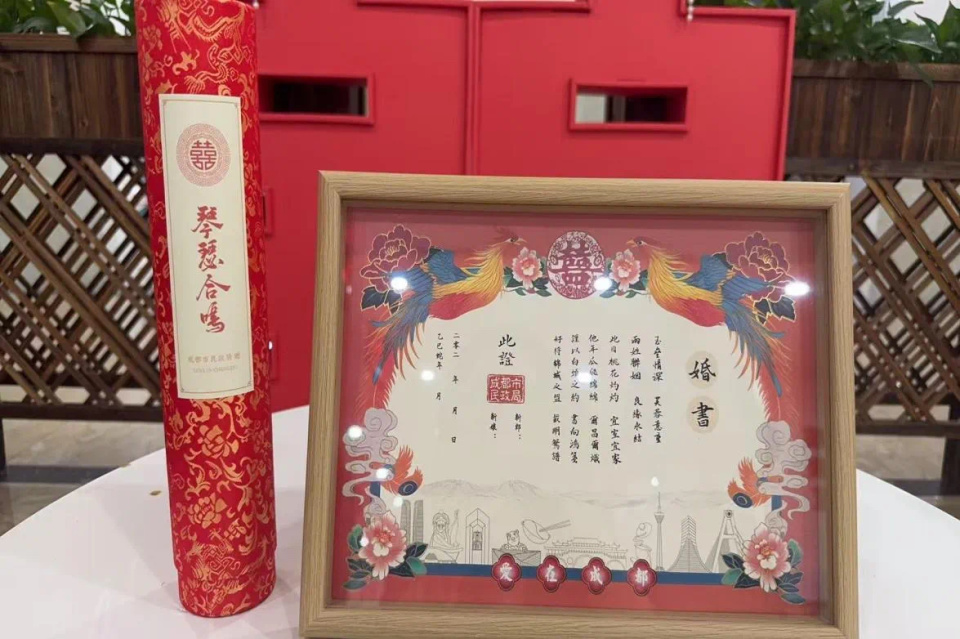 囍
琴瑟合鳴
囍
婚書
玉壘情深 芙蓉意重
兩姓聯姻 良緣永結
此日桃花灼灼 宜室宜家
他年瓜瓞綿綿 爾昌爾熾
謹以白頭之約 書向鴻箋
好將錦城之盟 載明鴛譜
此證
新郎：
新娘：
成都市
民政局
二零二 年 月 日
乙巳蛇年 月
愛在成都